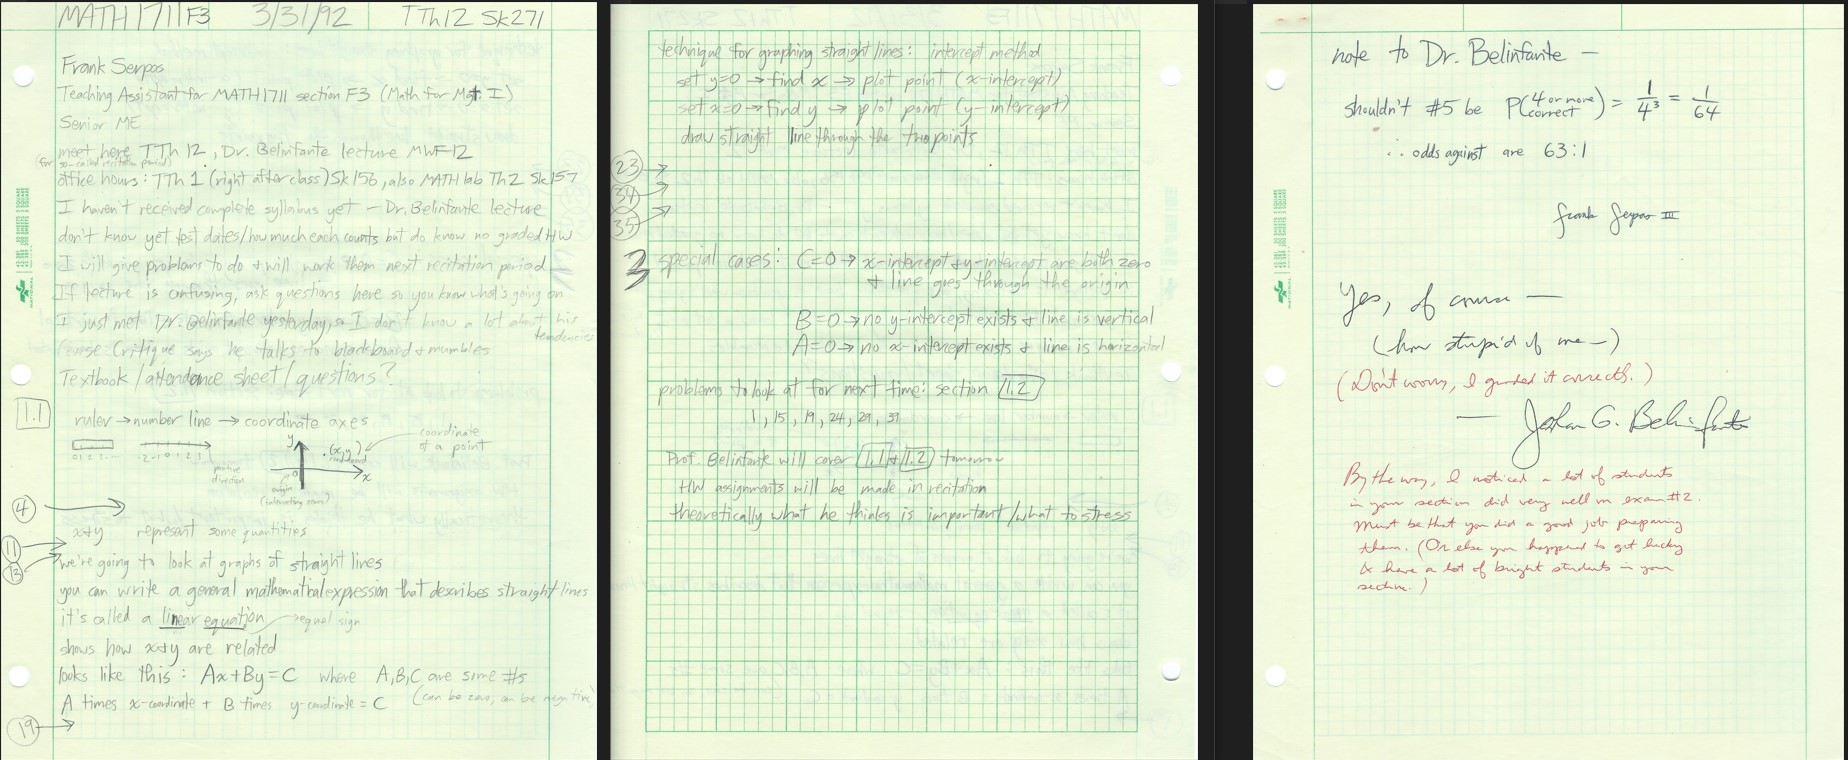 MATH 1711 F3 3/31/92 TTh12 Sk271
Frank Serpas
Teaching Assistant for MATH1711 section F3 (Math for Mgt. I)
Senior ME
meet here TTh 12, Dr. Belinfante lecture MWF 12
(for so-called recitation period)
office hours: TTh 1 (right after class) Sk 156, also MATH lab Th2 Sk157
I haven't received complete syllabus yet – Dr. Belinfante lecture
don't know yet test dates/how much each counts but do know no graded HW
I will give problems to do + will work them next recitation period
If lecture is confusing, ask questions here so you know what's going on
I just met Dr. Belinfante yesterday, so I don't know a lot about his
tendencies
Course Critique says he talks to blackboard + mumbles
Textbook / attendance sheet / questions?
1.1
ruler → number line → coordinate axes
0 1 2 3 ...
-2 -1 0 1 2 3
positive
direction
y
(x,y)
coordinate
of a point
x
origin
4
x+y represent some quantities
11
13
we're going to look at graphs of straight lines
you can write a general mathematical expression that describes straight lines
it's called a linear equation equal sign
shows how x+y are related
looks like this: Ax+By=C where A,B,C are some #s
(can be zero, can be negative)
A times x-coordinate + B times y-coordinate = C
19
technique for graphing straight lines: intercept method
set y=0 → find x → plot point (x-intercept)
set x=0 → find y → plot point (y-intercept)
draw straight line through the two points
23
34
35
3 special cases: C=0 → x-intercept + y-intercept are both zero
+ line goes through the origin
B=0 → no y-intercept exists + line is vertical
A=0 → no x-intercept exists + line is horizontal
problems to look at for next time: section 1.2
1, 15, 19, 24, 29, 39
Prof. Belinfante will cover 1.1 + 1.2 tomorrow
HW assignments will be made in recitation
theoretically what he thinks is important/what to stress
note to Dr. Belinfante –
shouldn't #5 be P(4 or more correct) = 1/4³ = 1/64
∴ odds against are 63:1
Frank Serpas III
Yes, of course —
(how stupid of me —)
(Don't worry, I graded it correctly.)
— Johan G. Belinfante
By the way, I noticed a lot of students
in your section did very well on exam #2.
Must be that you did a good job preparing
them. (Or else you happened to get lucky
& have a lot of bright students in your
section.)